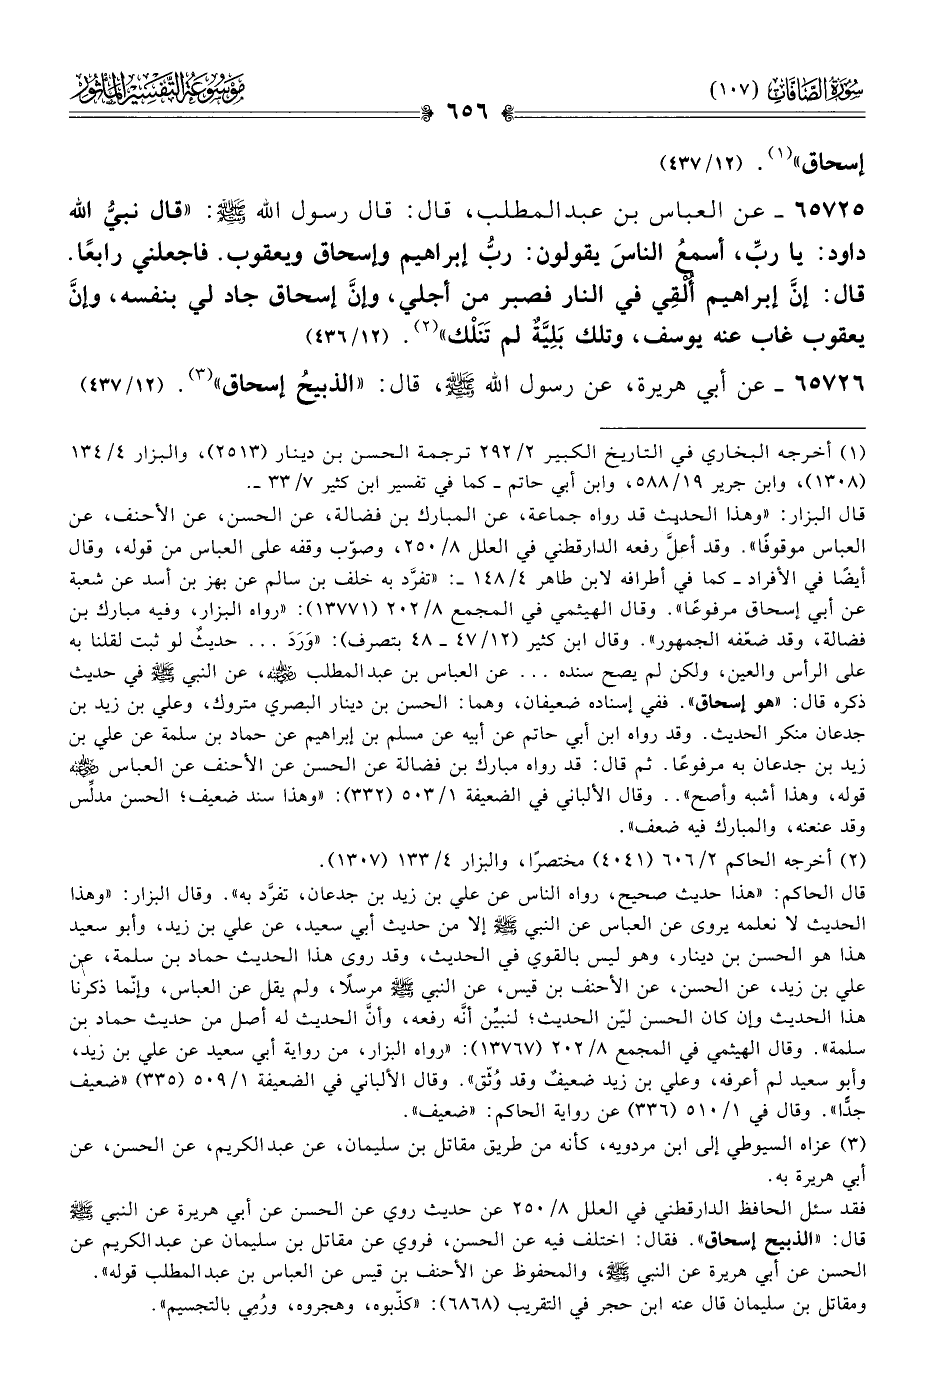 سُورَةُ الصَّافَّاتِ (١٠٧)
٦٥٦
مَوْسُوعَةُ التَّفْسِيرِ المَأْثُورِ
إسحاق»(١). (١٢/ ٤٣٧)
٦٥٧٢٥ ـ عن العباس بن عبدالمطلب، قال: قال رسول الله ﷺ: «قال نبيُّ الله
داود: يا ربِّ، أسمعُ الناسَ يقولون: ربُّ إبراهيم وإسحاق ويعقوب. فاجعلني رابعًا.
قال: إنَّ إبراهيم أُلْقِي في النار فصبر من أجلي، وإنَّ إسحاق جاد لي بنفسه، وإنَّ
يعقوب غاب عنه يوسف، وتلك بَلِيَّةٌ لم تَنَلْك»(٢). (١٢/ ٤٣٦)
٦٥٧٢٦ ـ عن أبي هريرة، عن رسول الله ﷺ، قال: «الذبيحُ إسحاق»(٣). (١٢/ ٤٣٧)
(١) أخرجه البخاري في التاريخ الكبير ٢/ ٢٩٢ ترجمة الحسن بن دينار (٢٥١٣)، والبزار ٤/ ١٣٤
(١٣٠٨)، وابن جرير ١٩/ ٥٨٨، وابن أبي حاتم ـ كما في تفسير ابن كثير ٧/ ٣٣ ـ.
قال البزار: «وهذا الحديث قد رواه جماعة، عن المبارك بن فضالة، عن الحسن، عن الأحنف، عن
العباس موقوفًا». وقد أعلَّ رفعه الدارقطني في العلل ٨/ ٢٥٠، وصوّب وقفه على العباس من قوله، وقال
أيضًا في الأفراد ـ كما في أطرافه لابن طاهر ٤/ ١٤٨ ـ: «تفرَّد به خلف بن سالم عن بهز بن أسد عن شعبة
عن أبي إسحاق مرفوعًا». وقال الهيثمي في المجمع ٨/ ٢٠٢ (١٣٧٧١): «رواه البزار، وفيه مبارك بن
فضالة، وقد ضعّفه الجمهور». وقال ابن كثير (١٢/ ٤٧ ـ ٤٨ بتصرف): «وَرَدَ ... حديثٌ لو ثبت لقلنا به
على الرأس والعين، ولكن لم يصح سنده ... عن العباس بن عبدالمطلب رضي الله عنه، عن النبي ﷺ في حديث
ذكره قال: «هو إسحاق». ففي إسناده ضعيفان، وهما: الحسن بن دينار البصري متروك، وعلي بن زيد بن
جدعان منكر الحديث. وقد رواه ابن أبي حاتم عن أبيه عن مسلم بن إبراهيم عن حماد بن سلمة عن علي بن
زيد بن جدعان به مرفوعًا. ثم قال: قد رواه مبارك بن فضالة عن الحسن عن الأحنف عن العباس رضي الله عنه
قوله، وهذا أشبه وأصح».. وقال الألباني في الضعيفة ١/ ٥٠٣ (٣٣٢): «وهذا سند ضعيف؛ الحسن مدلِّس
وقد عنعنه، والمبارك فيه ضعف».
(٢) أخرجه الحاكم ٢/ ٦٠٦ (٤٠٤١) مختصرًا، والبزار ٤/ ١٣٣ (١٣٠٧).
قال الحاكم: «هذا حديث صحيح، رواه الناس عن علي بن زيد بن جدعان، تفرَّد به». وقال البزار: «وهذا
الحديث لا نعلمه يروى عن العباس عن النبي ﷺ إلا من حديث أبي سعيد، عن علي بن زيد، وأبو سعيد
هذا هو الحسن بن دينار، وهو ليس بالقوي في الحديث، وقد روى هذا الحديث حماد بن سلمة، عن
علي بن زيد، عن الحسن، عن الأحنف بن قيس، عن النبي ﷺ مرسلًا، ولم يقل عن العباس، وإنّما ذكرنا
هذا الحديث وإن كان الحسن ليّن الحديث؛ لنبيِّن أنَّه رفعه، وأنَّ الحديث له أصل من حديث حماد بن
سلمة». وقال الهيثمي في المجمع ٨/ ٢٠٢ (١٣٧٦٧): «رواه البزار، من رواية أبي سعيد عن علي بن زيد،
وأبو سعيد لم أعرفه، وعلي بن زيد ضعيفٌ وقد وُثّق». وقال الألباني في الضعيفة ١/ ٥٠٩ (٣٣٥) «ضعيف
جدًّا». وقال في ١/ ٥١٠ (٣٣٦) عن رواية الحاكم: «ضعيف».
(٣) عزاه السيوطي إلى ابن مردويه، كأنه من طريق مقاتل بن سليمان، عن عبدالكريم، عن الحسن، عن
أبي هريرة به.
فقد سئل الحافظ الدارقطني في العلل ٨/ ٢٥٠ عن حديث روي عن الحسن عن أبي هريرة عن النبي ﷺ
قال: «الذبيح إسحاق». فقال: اختلف فيه عن الحسن، فروي عن مقاتل بن سليمان عن عبدالكريم عن
الحسن عن أبي هريرة عن النبي ﷺ، والمحفوظ عن الأحنف بن قيس عن العباس بن عبدالمطلب قوله».
ومقاتل بن سليمان قال عنه ابن حجر في التقريب (٦٨٦٨): «كذّبوه، وهجروه، ورُمِي بالتجسيم».